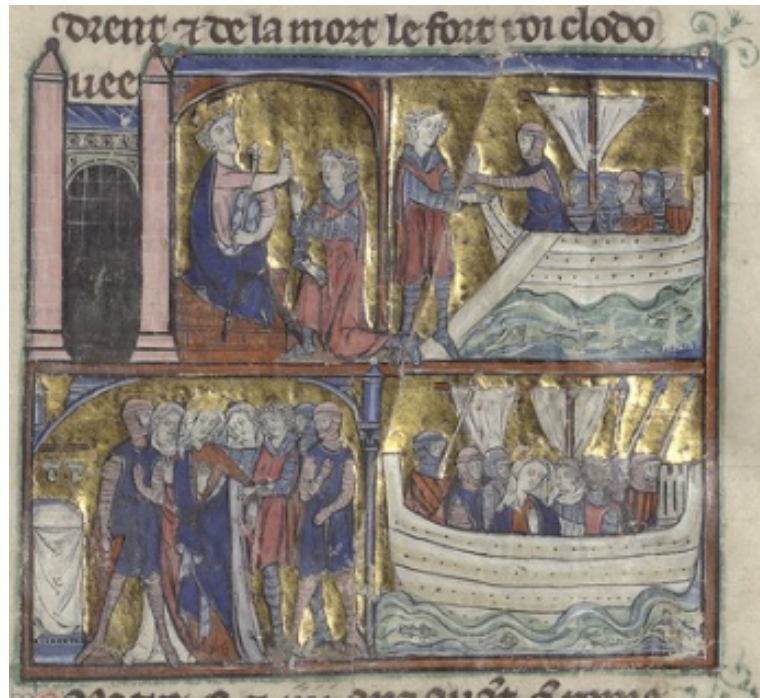 drent ⁊ de la mort le fort roi clodo
uee